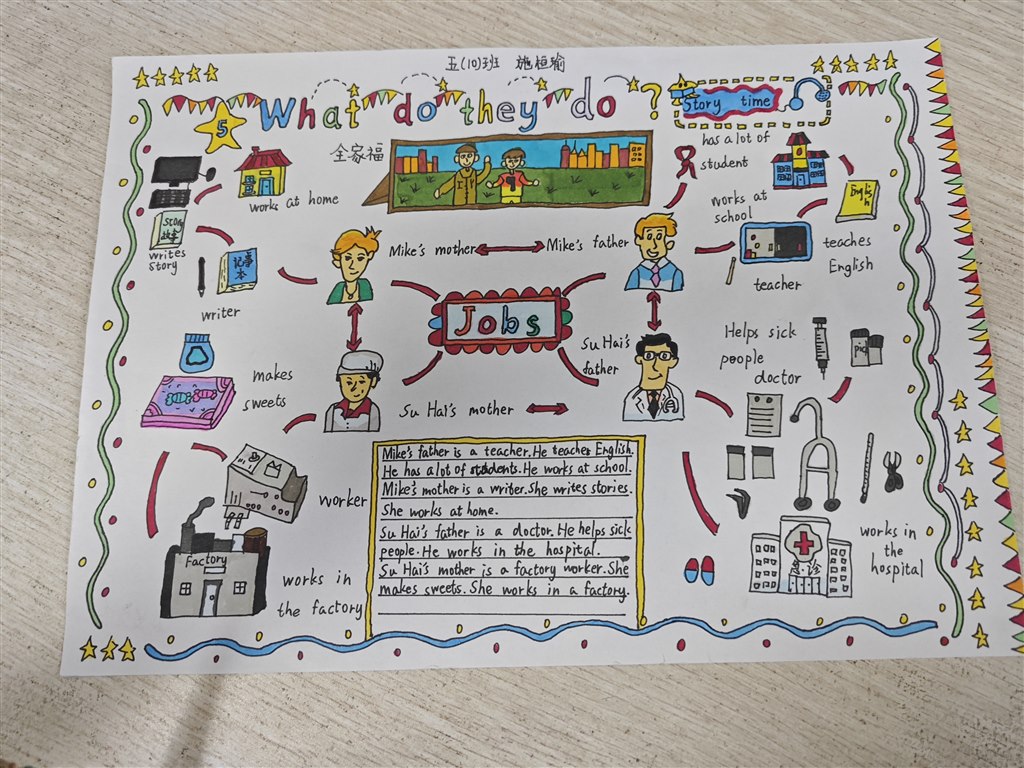 五(10)班 施恒瑜
What do they do ?
5
Story time
全家福
works at home
Story
故事
writes
story
记事
本
writer
Mike's mother
Mike's father
has a lot of
student
works at
school
English
teaches
English
teacher
Jobs
Su Hai's
father
Helps sick
people
doctor
makes
sweets
Su Hai's mother
worker
Factory
works in
the factory
Mike's father is a teacher. He teaches English.
He has a lot of students. He works at school.
Mike's mother is a writer. She writes stories.
She works at home.
Su Hai's father is a doctor. He helps sick
people. He works in the hospital.
Su Hai's mother is a factory worker. She
makes sweets. She works in a factory.
急诊
works in
the
hospital